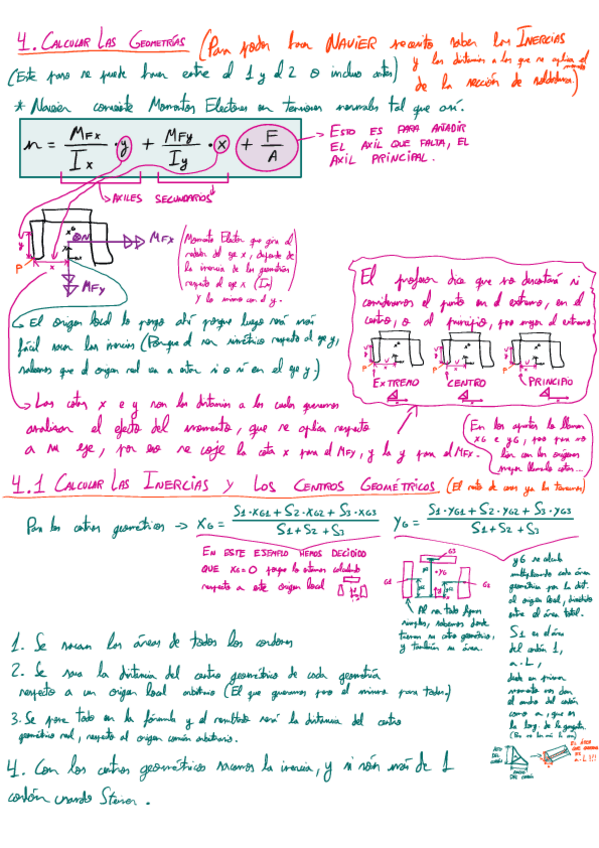 4. CALCULAR LAS GEOMETRÍAS (Para poder hacer NAVIER necesito saber las INERCIAS
y las distancias a las que se aplica el
de la sección de soldadura)
(Este paso se puede hacer entre el 1 y el 2 o incluso antes)
* Navier convierte Momentos Flectores en tensiones normales tal que así.
n = MFx/Ix · y + MFy/Iy · x + F/A
→ ESTO ES PARA AÑADIR
EL AXIL QUE FALTA, EL
AXIL PRINCIPAL.
→ AXILES SECUNDARIOS
MFx
MFy
P
y
x
(Momento Flector que gira
alrededor del eje x, depende de
la inercia de la geometría
respecto al eje x (Ix)
y lo mismo con el y.
→ El origen local lo pongo ahí porque luego será más
fácil sacar las inercias (Porque al ser simétrico respecto al eje y,
sabemos que el origen real va a estar sí o sí en el eje y.)
El profesor dice que no descontará si
consideramos el punto en el extremo, en el
centro, o al principio, pero mejor el extremo
EXTREMO CENTRO PRINCIPIO
→ Las cotas x e y son las distancias a las cuales queremos
analizar el efecto del momento, que se aplica respecto
a su eje, por eso se coje la cota x para el MFy, y la y para el MFx.
(En los apuntes lo llaman
xG e yG, pero para no
liar con los orígenes
mejor llamarlo cotas...)
4.1 CALCULAR LAS INERCIAS Y LOS CENTROS GEOMÉTRICOS (El resto de cosas ya las tenemos)
Para los centros geométricos → XG = (S1·XG1 + S2·XG2 + S3·XG3)/(S1+S2+S3) YG = (S1·YG1 + S2·YG2 + S3·YG3)/(S1+S2+S3)
EN ESTE EJEMPLO HEMOS DECIDIDO
QUE XG=0 porque lo estamos calculando
respecto a este origen local
G3
G2
Al ser todo figuras
simples, sabemos donde
tienen su centro geométrico,
y también su área.
yG se calcula
multiplicando cada área
geométrica por la dist.
al origen local, dividido
entre el área total.
S1 es el área
del cordón 1,
a·L,
1. Se sacan las áreas de todos los cordones
2. Se saca la distancia del centro geométrico de cada geometría
respecto a un origen local arbitrario (El que queramos pero el mismo para todos.)
3. Se pone todo en la fórmula y el resultado será la distancia del centro
geométrico real, respecto al origen común arbitrario.
4. Con los centros geométricos sacamos la inercia, y si son más de 1
cordón usando Steiner.